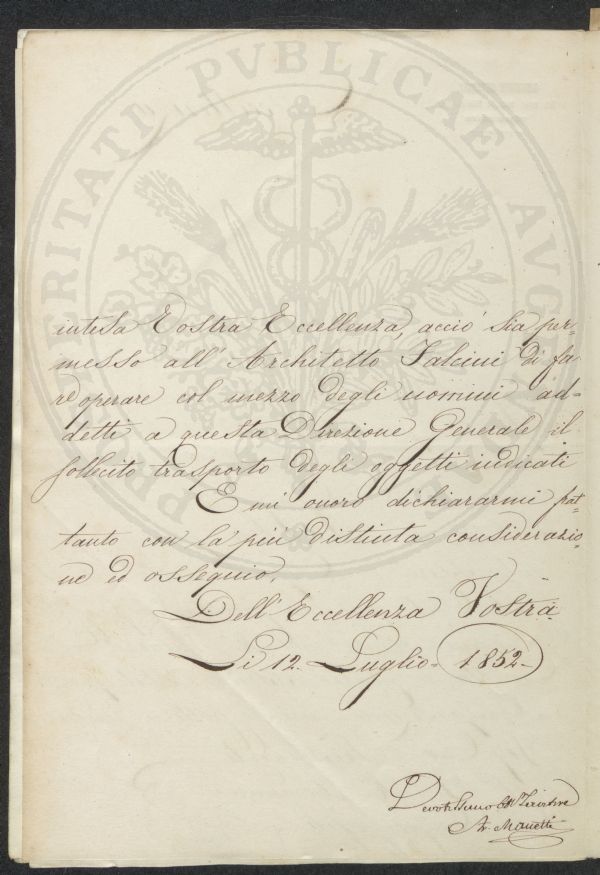 PVBLICAE
VERITATI
intesa Vostra Eccellenza, acciò sia per=
messo all' Architetto Falcini di fa=
re operare col mezzo degli uomini ad=
detti a questa Direzione Generale il
sollecito trasporto degli oggetti indicati
E mi onoro dichiararmi frat=
tanto con la più distinta considerazio=
ne ed ossequio.
Dell' Eccellenza Vostra
Li 12. Luglio= 1852=
Devotissimo Servitore
Manetti